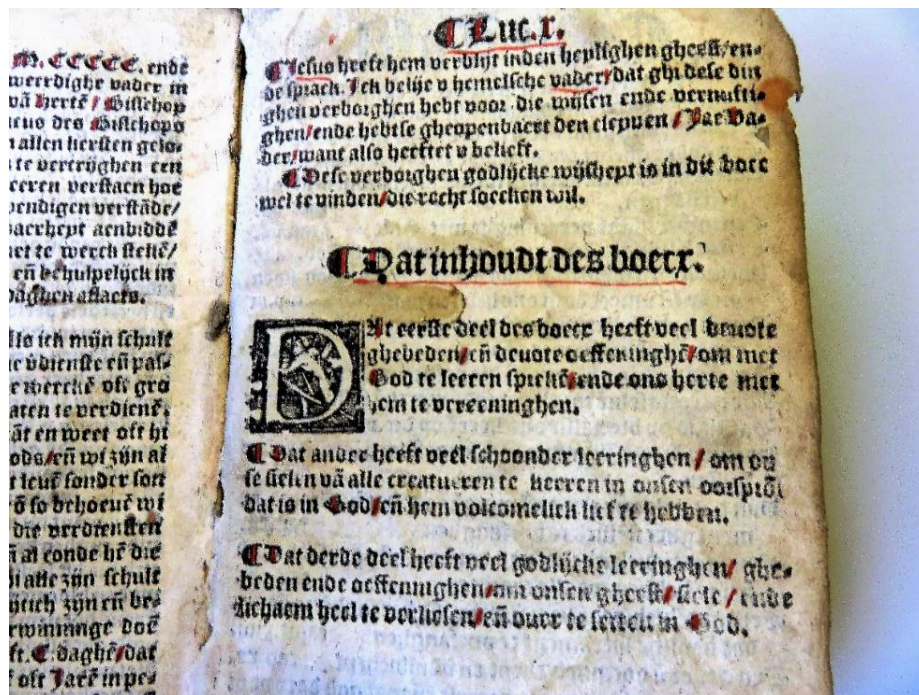 M. CCCCC. ende
weerdighe vader in
vā herte / Bisschop
des Bisschops
allen kersten gelo-
te vercrijghen een
verstaen hoe
vendigen verstāde/
aenbiddē
te werck stellē/
eñ behulpelijck in
daghen aflaets.
ick mijn schult
eñ pas-
werckē oft gro
te verdienē.
en weet oft hi
eñ wi zijn al
sonder son
so behoevē wi
die verdiensten
al eonde hē die
alle zijn schult
zijn eñ be-
doē
C. daghē/dat
oft Jarē in pes
¶ Luc. x.
¶ Jesus heeft hem verblijt inden heylighen gheest/en-
de sprack. Ick belije v hemelsche vader/dat ghi dese din
ghen verborghen hebt voor die wijsen ende vernufti-
ghen/ende hebtse gheopenbaert den cleynen / Jae Va-
der/want also heeftet v belieft.
¶ Dese verborghen godlijcke wijsheyt is in dit boec
wel te vinden/die recht soecken wil.
¶ Dat inhoudt des boecx.
DAt eerste deel des boecx heeft veel deuote
ghebeden/eñ deuote oeffeninghē/om met
God te leeren sprekē/ende ons herte met
hem te vereeninghen.
¶ Dat ander heeft veel schoonder leeringhen / om on
se sielen vā alle creatueren te keeren in onsen oorsprōc
dat is in God/eñ hem volcomelich lief te hebben.
¶ Dat derde deel heeft veel godlijcke leeringhen/ ghe-
beden ende oeffeninghen/om onsen gheest/ siele / ende
lichaem heel te verliesen/eñ ouer te setten in God.